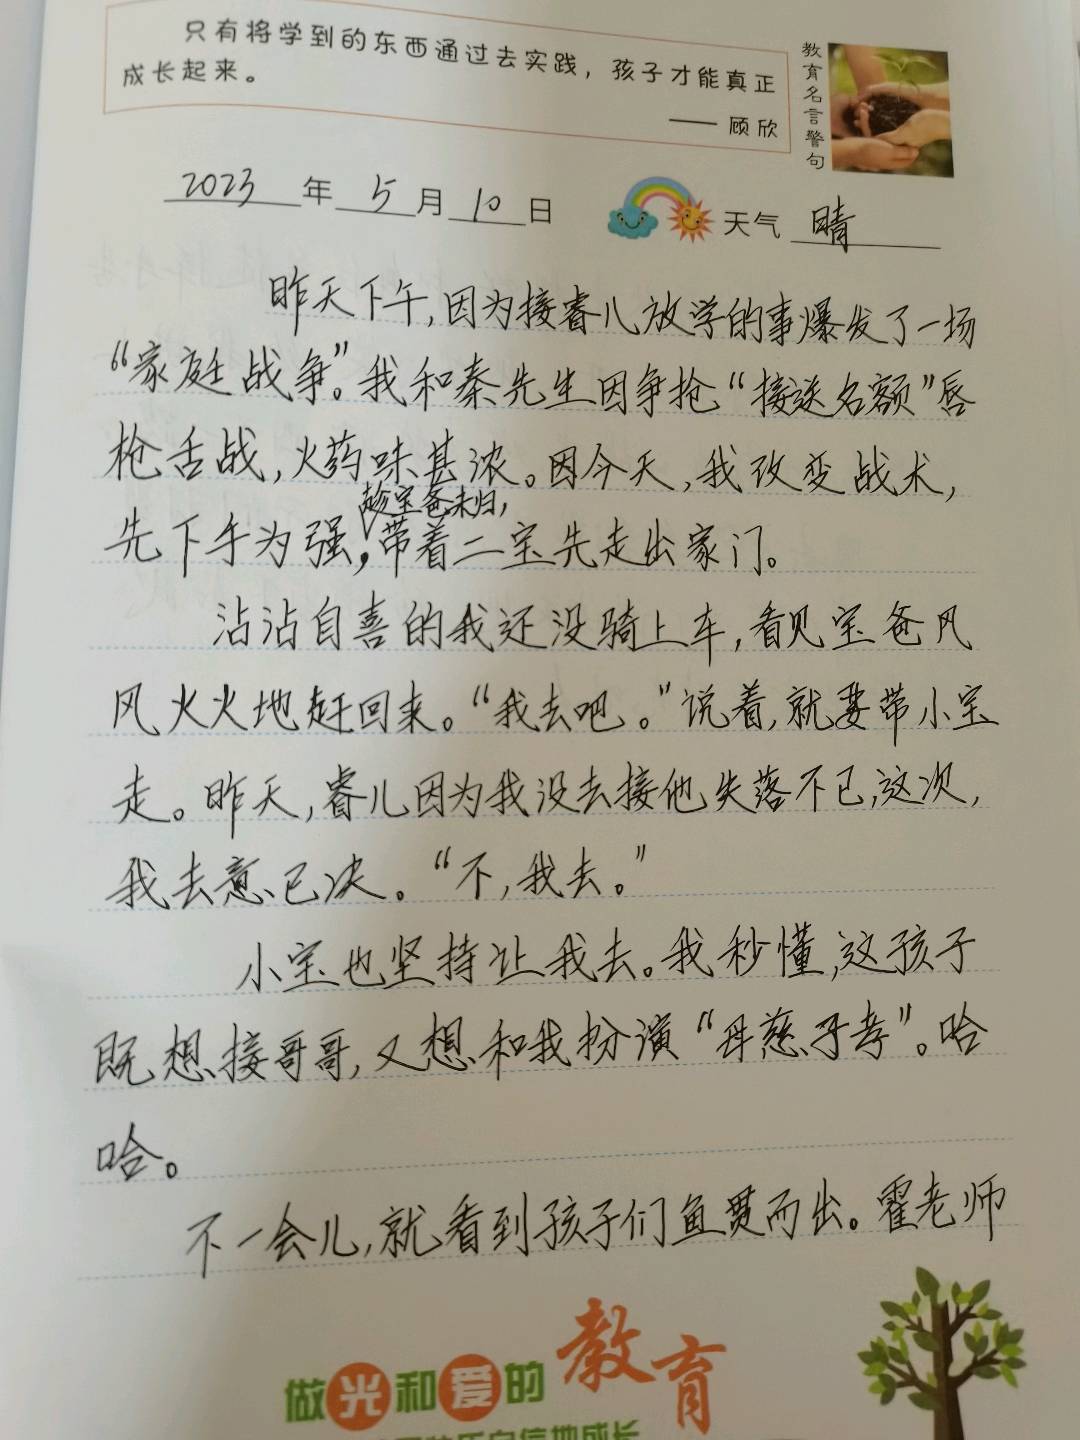 只有将学到的东西通过去实践，孩子才能真正
成长起来。
—— 顾欣
教育名言警句
2023年5月10日
天气 晴
昨天下午,因为接睿儿放学的事爆发了一场
“家庭战争”。我和秦先生因争抢“接送名额”唇
枪舌战,火药味甚浓。因今天,我改变战术,
趁宝爸未归,
先下手为强,带着二宝先走出家门。
沾沾自喜的我还没骑上车,看见宝爸风
风火火地赶回来。“我去吧。”说着,就要带小宝
走。昨天,睿儿因为我没去接他失落不已,这次,
我去意已决。“不,我去。”
小宝也坚持让我去。我秒懂,这孩子
既想接哥哥,又想和我扮演“母慈子孝”。哈
哈。
不一会儿,就看到孩子们鱼贯而出。霍老师
做光和爱的教育